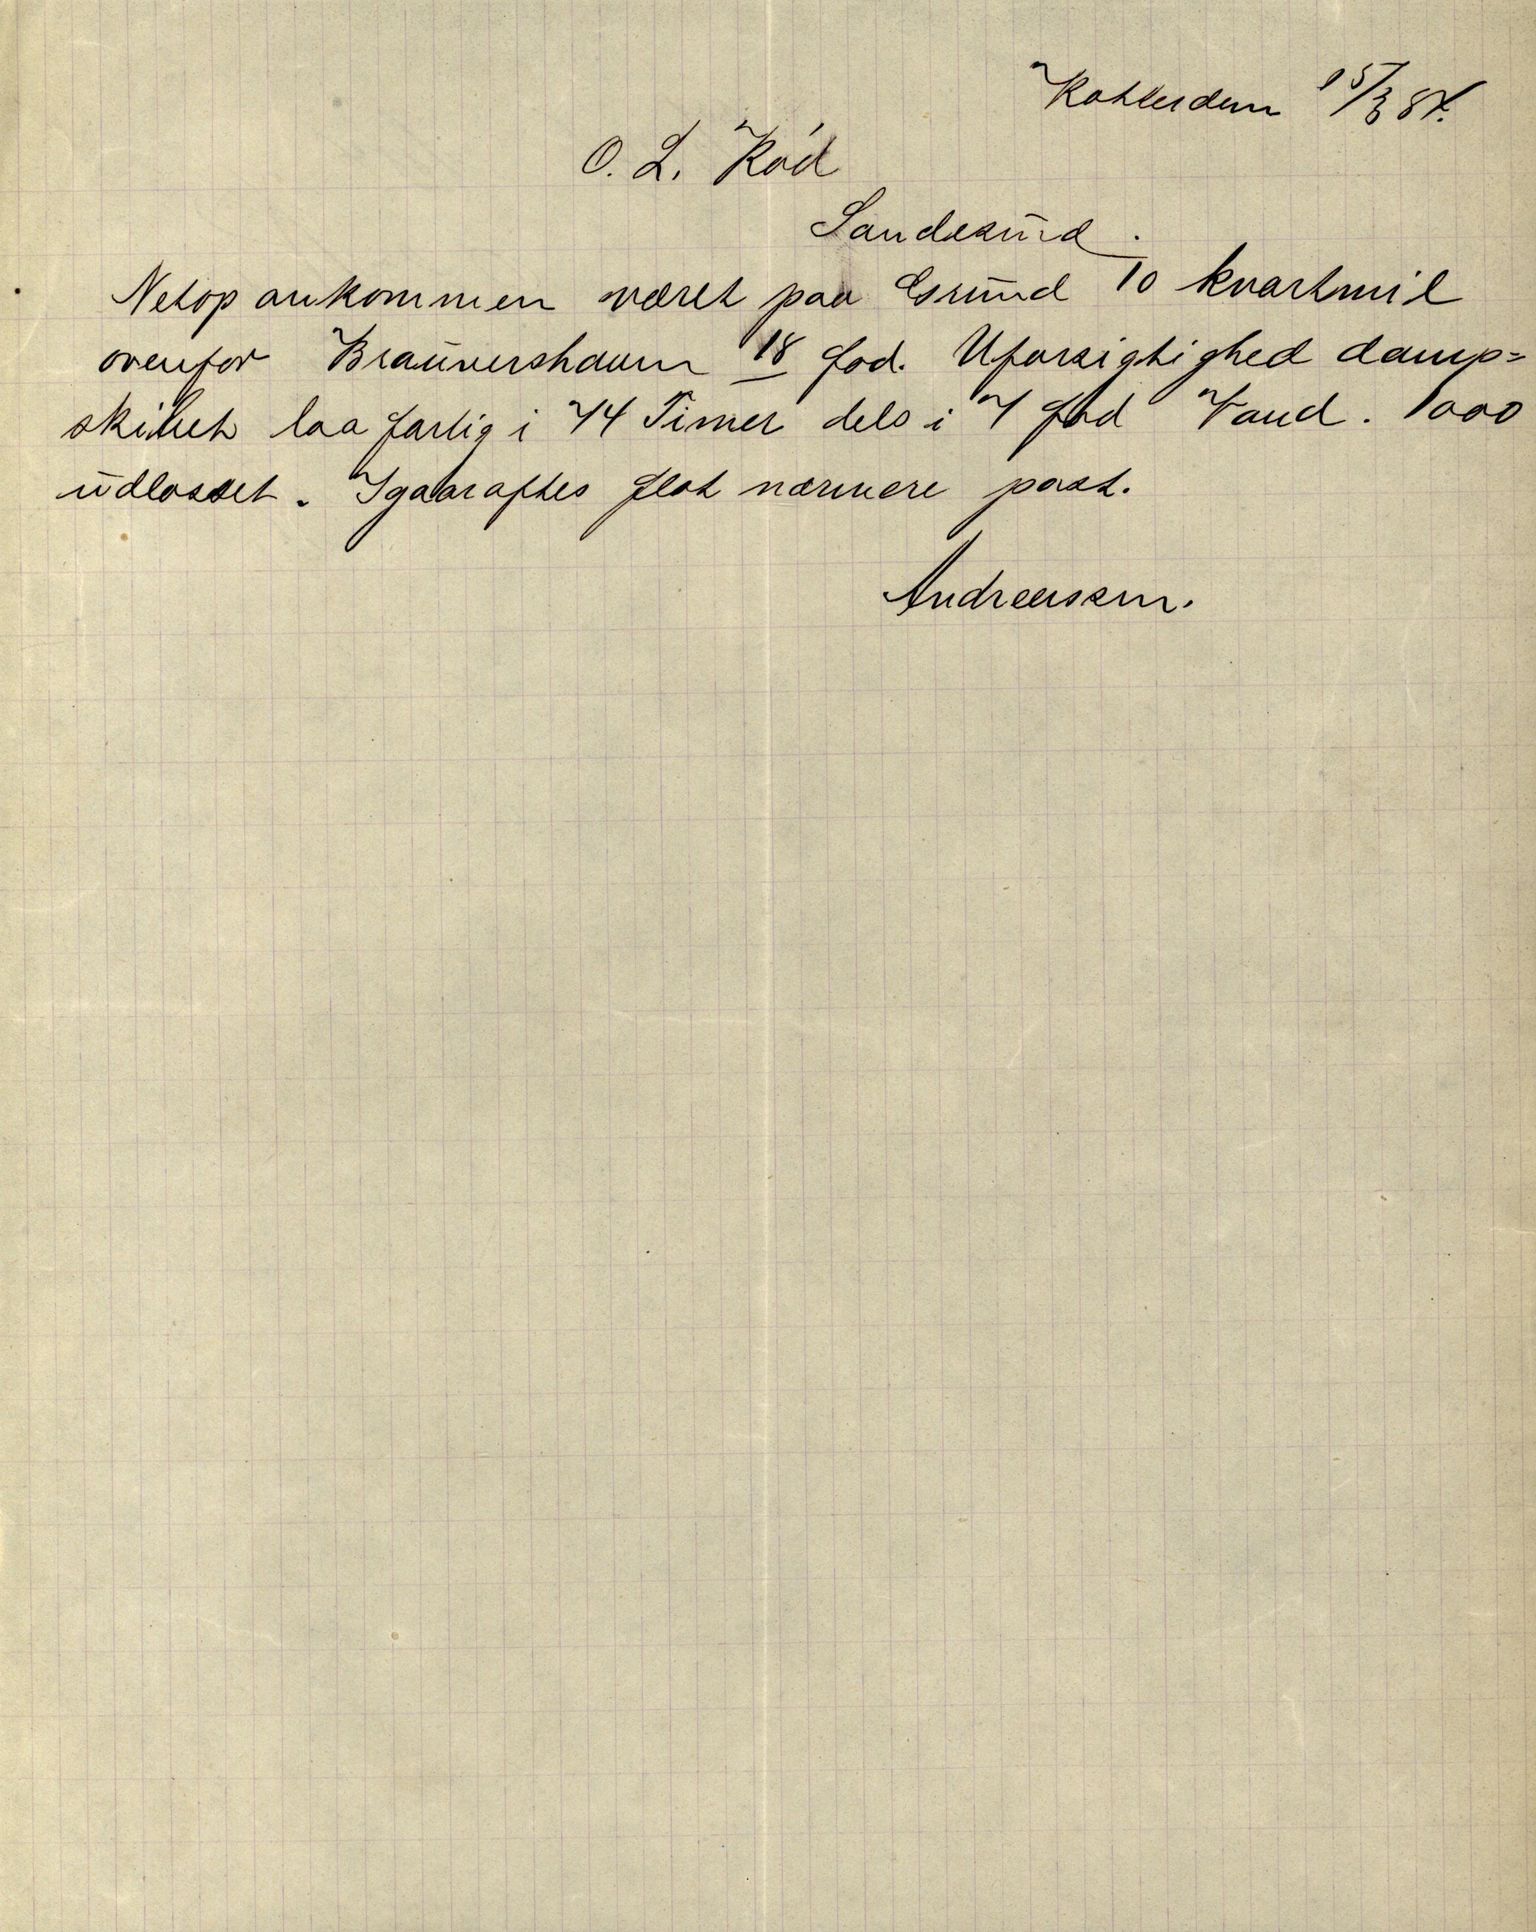 Rotterdam 15/3 87.
O. L. Röd
Sandesund.
Netop ankommen været paa Grund 10 kvartmil
ovenfor Brauwershavn 18 fod. Uforsigtighed damp=
skibet laa farlig i 74 Timer dels i 7 fod Vand. 1000
udlosset. Igaaraftes flot nærmere post.
Andreassen.